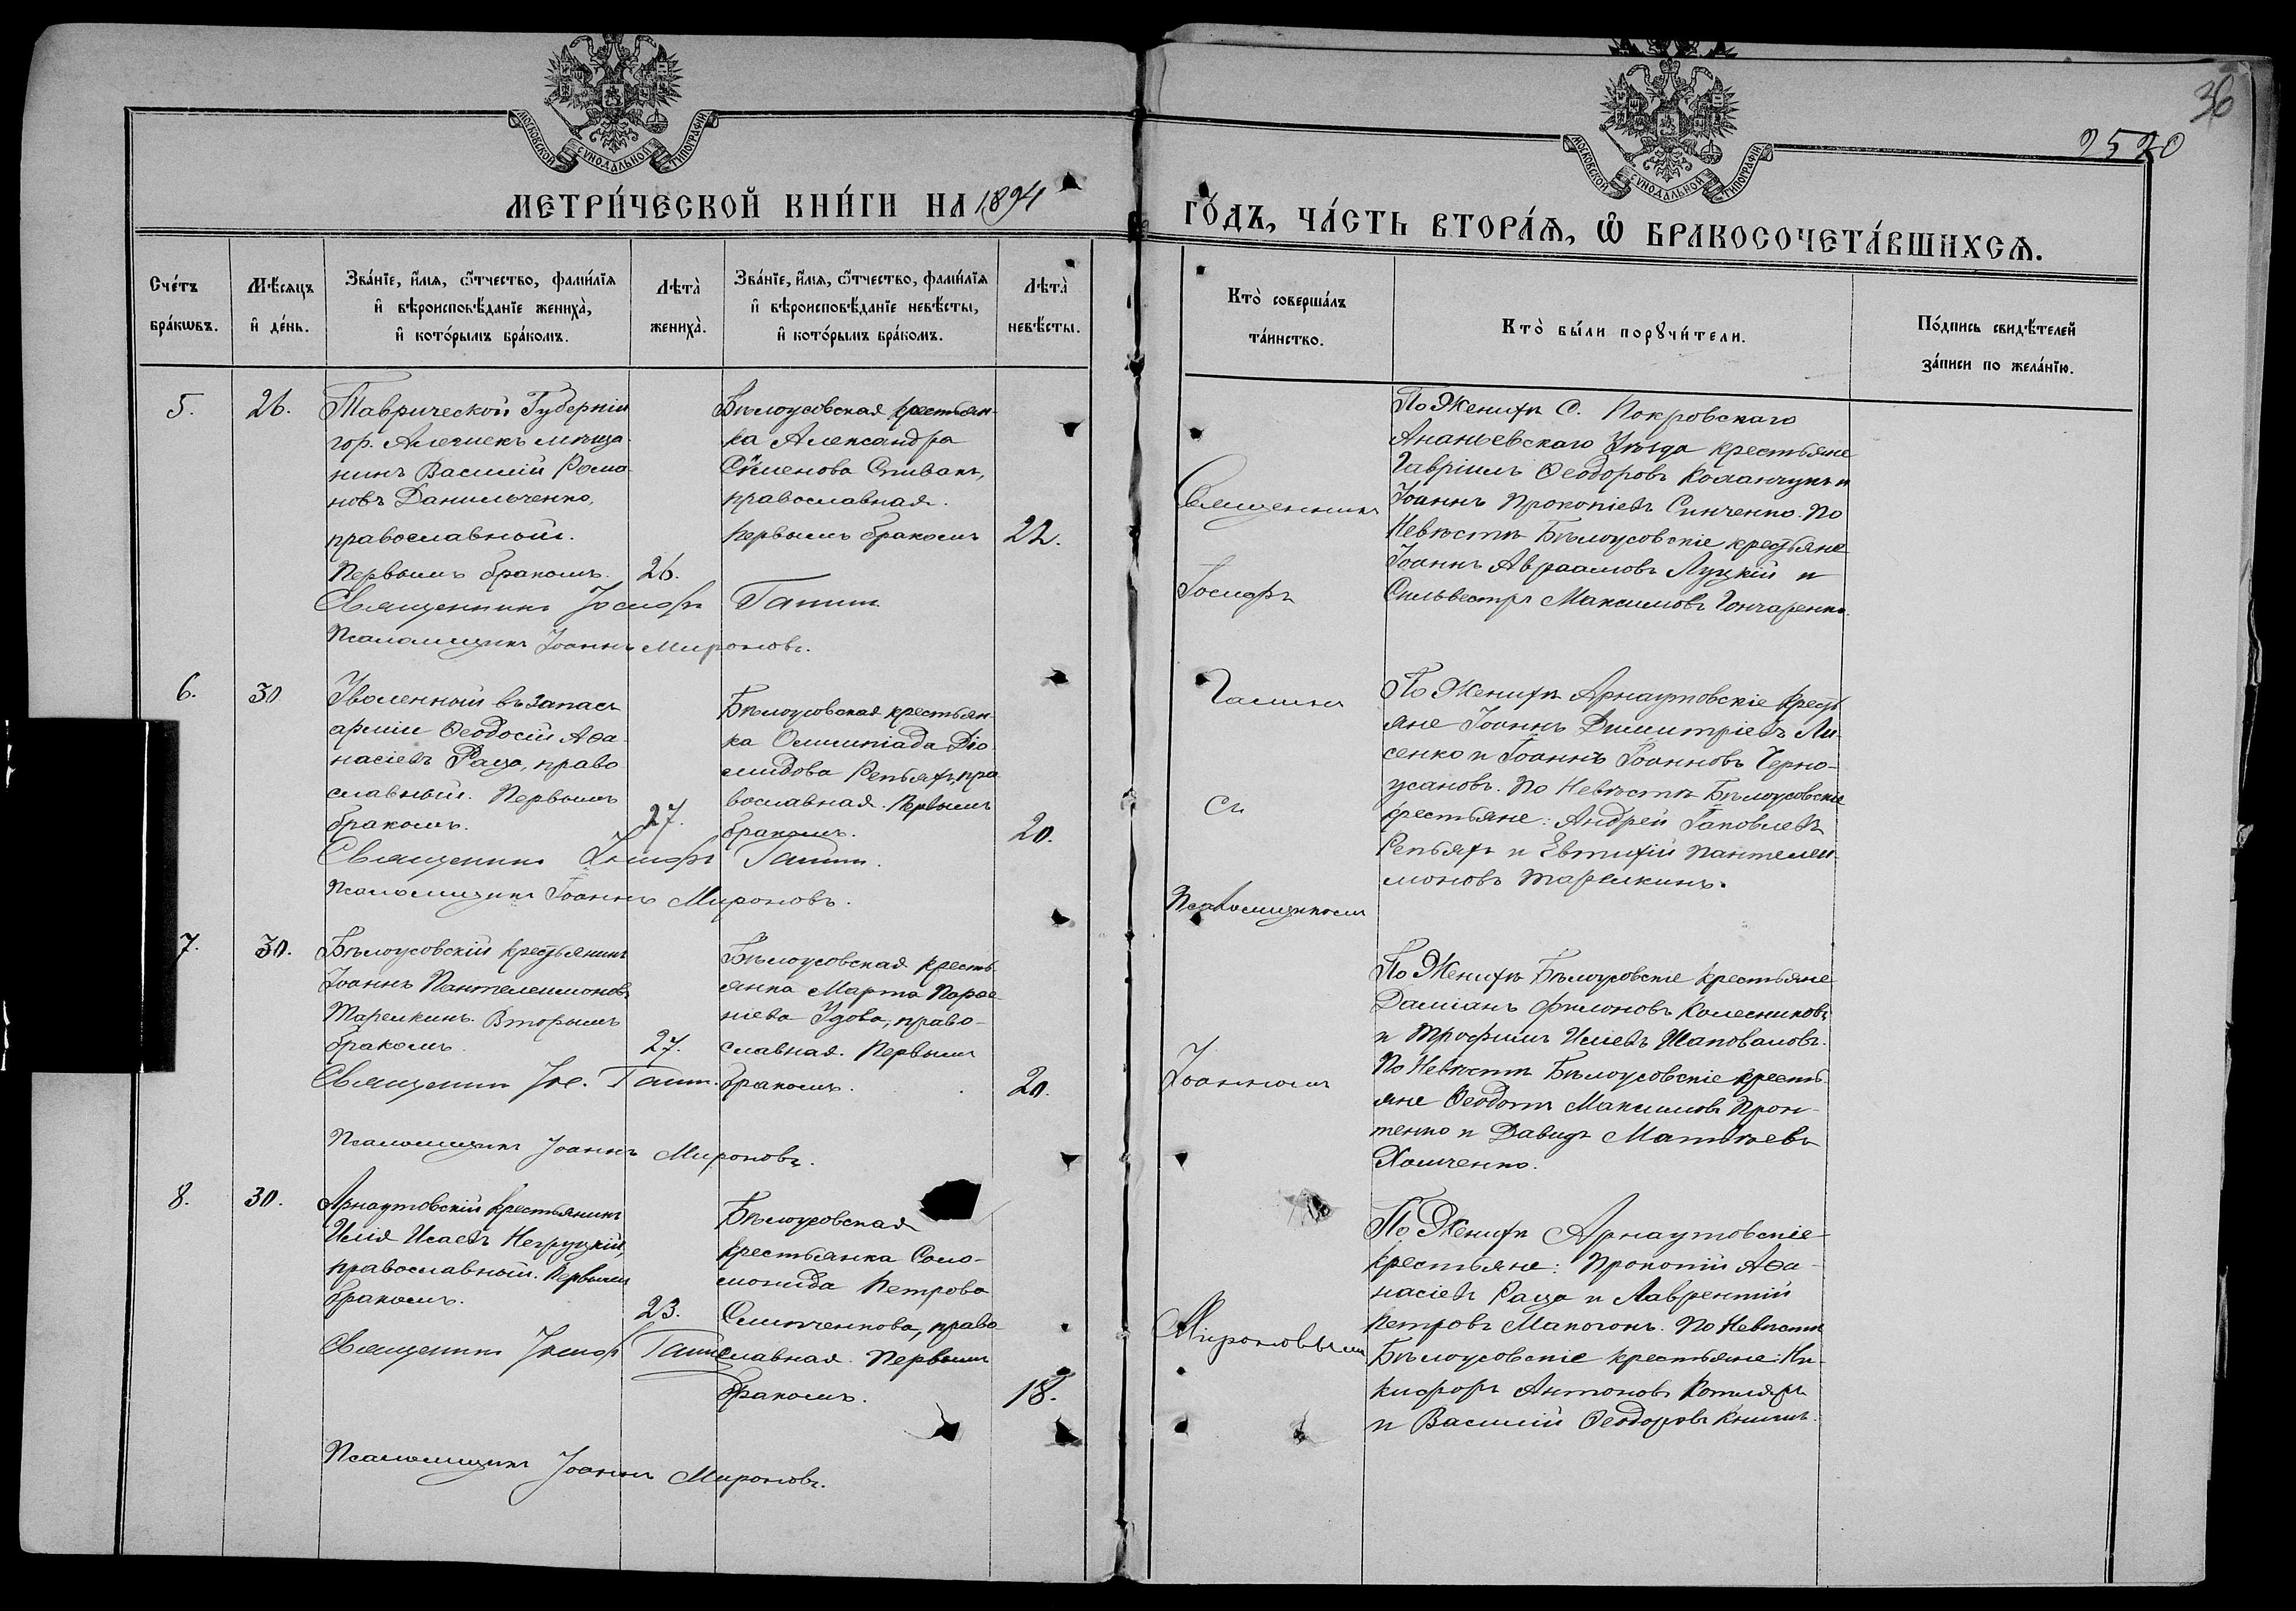 36
2520
МОСКОВСКОЙ СУНОДАЛЬНОЙ ТИПОГРАФІИ
МОСКОВСКОЙ СУНОДАЛЬНОЙ ТИПОГРАФІИ
МЕТРИ́ЧЕСКОЙ КНИ́ГИ НА 1894
ГО́ДЪ, ЧА́СТЬ ВТОРА́Ѧ, Ѽ БРАКОСОЧЕТА́ВШИХСѦ.
Сче́тъ бра́кѡвъ.
Мѣ́сяцъ и҆ де́нь.
Зва́нїе, и҆́мя, ѻ҆́тчество, фами́лїя
и҆ вѣроисповѣ́данїе жениха̀,
и҆ кото́рымъ бра́комъ.
Лѣта̀ жениха̀.
Зва́нїе, и҆́мя, ѻ҆́тчество, фами́лїя
и҆ вѣроисповѣ́данїе невѣ́сты,
и҆ кото́рымъ бра́комъ.
Лѣта̀ невѣ́сты.
Кто̀ соверша́лъ
та́инство.
Кто̀ бы́ли порꙋчи́тели.
По́дпись свидѣ́телей
за́писи по жела́нїю.
5.
26.
Таврической Губерніи
гор. Алешекъ мѣща-
нинъ Василій Рома-
новъ Данильченко,
православный.
Первымъ бракомъ.
26.
Бѣлоусовская крестьян-
ка Александра
Сѵменова Спивакъ,
православная.
Первымъ бракомъ
22.
Священникъ Іосифъ
Псаломщикъ Іоаннъ Мироновъ.
По Женихѣ С. Покровскаго
Ананьевскаго Уѣзда крестьяне
Гавріилъ Ѳеодоровъ и
Іоаннъ Прокопіевъ Синченко. По
Невѣстѣ Бѣлоусовскіе крестьяне
Іоаннъ Авраамовъ Луцкій и
Сильвестръ Максимовъ Гончаренко.
6.
30
Уволенный въ запасъ
арміи Ѳеодосій Аѳа-
насіевъ Раца, право
славный. Первымъ
бракомъ.
27.
Бѣлоусовская крестьян-
ка Олимпіада Діо-
мидова Репьяхъ, пра
вославная. Первымъ
бракомъ.
20.
Священникъ Іосифъ
Псаломщикъ Іоаннъ Мироновъ.
По Женихѣ Арнаутовскіе крестъ
яне Іоаннъ Димитріевъ Ли-
сенко и Іоаннъ Іоанновъ Черно-
усановъ. По Невѣстѣ Бѣлоусовскіе
крестьяне: Андрей Іаковлевъ
Репьяхъ и Евтихій Пантелеи-
моновъ Тарелкинъ.
7.
30.
Бѣлоусовскій крестьянинъ
Іоаннъ Пантелеимоновъ
Тарелкинъ. Вторымъ
бракомъ.
27.
Бѣлоусовская кресть
янка Марта
Удова, право-
славная. Первымъ
бракомъ.
20.
Священникъ Іос.
Псаломщикъ Іоаннъ Мироновъ.
По Женихѣ Бѣлоусовскіе крестьяне
Даміанъ Филоновъ Колесниковъ
и Трофимъ Иліевъ Шаповаловъ.
По Невѣстѣ Бѣлоусовскіе кресть-
яне Ѳеодотъ Максимовъ
и Давидъ Матѳѣевъ
Хомченко.
8.
30.
Арнаутовскій крестьянинъ
Илія Исаевъ Негруцкій,
православный. Первымъ
бракомъ.
23.
Бѣлоусовская
крестьянка Соло-
монида Петрова
православная. Первымъ
бракомъ.
18.
Священникъ Іосифъ
Псаломщикъ Іоаннъ Мироновъ.
По Женихѣ Арнаутовскіе
крестьяне: Прокопій Аѳа-
насіевъ Раца и Лаврентій
Петровъ Макогонъ. По Невѣстѣ
Бѣлоусовскіе крестьяне: Ни-
кифоръ Антоновъ Котляръ
и Василій Ѳеодоровъ
Священникъ
Іосифъ
съ
Псаломщикомъ
Іоанномъ
Мироновымъ